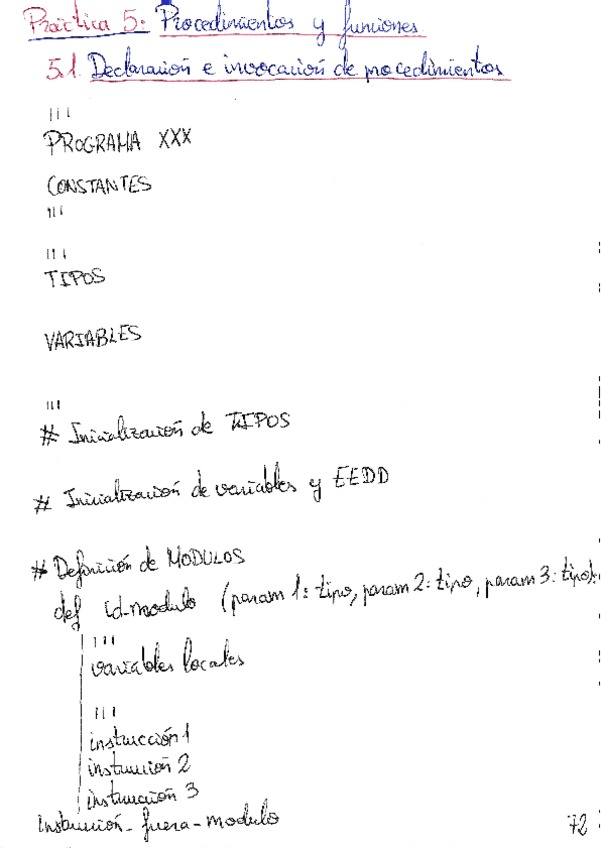 Práctica 5: Procedimientos y funciones
5.1. Declaración e invocación de procedimientos
'''
PROGRAMA XXX
CONSTANTES
'''
'''
TIPOS
VARIABLES
'''
# Inicialización de TIPOS
# Inicialización de variables y EEDD
# Definición de MODULOS
def id-modulo (param 1: tipo, param 2: tipo, param 3: tipo):
'''
variables locales
'''
instrucción 1
instrucción 2
instrucción 3
Instrucción-fuera-modulo
72